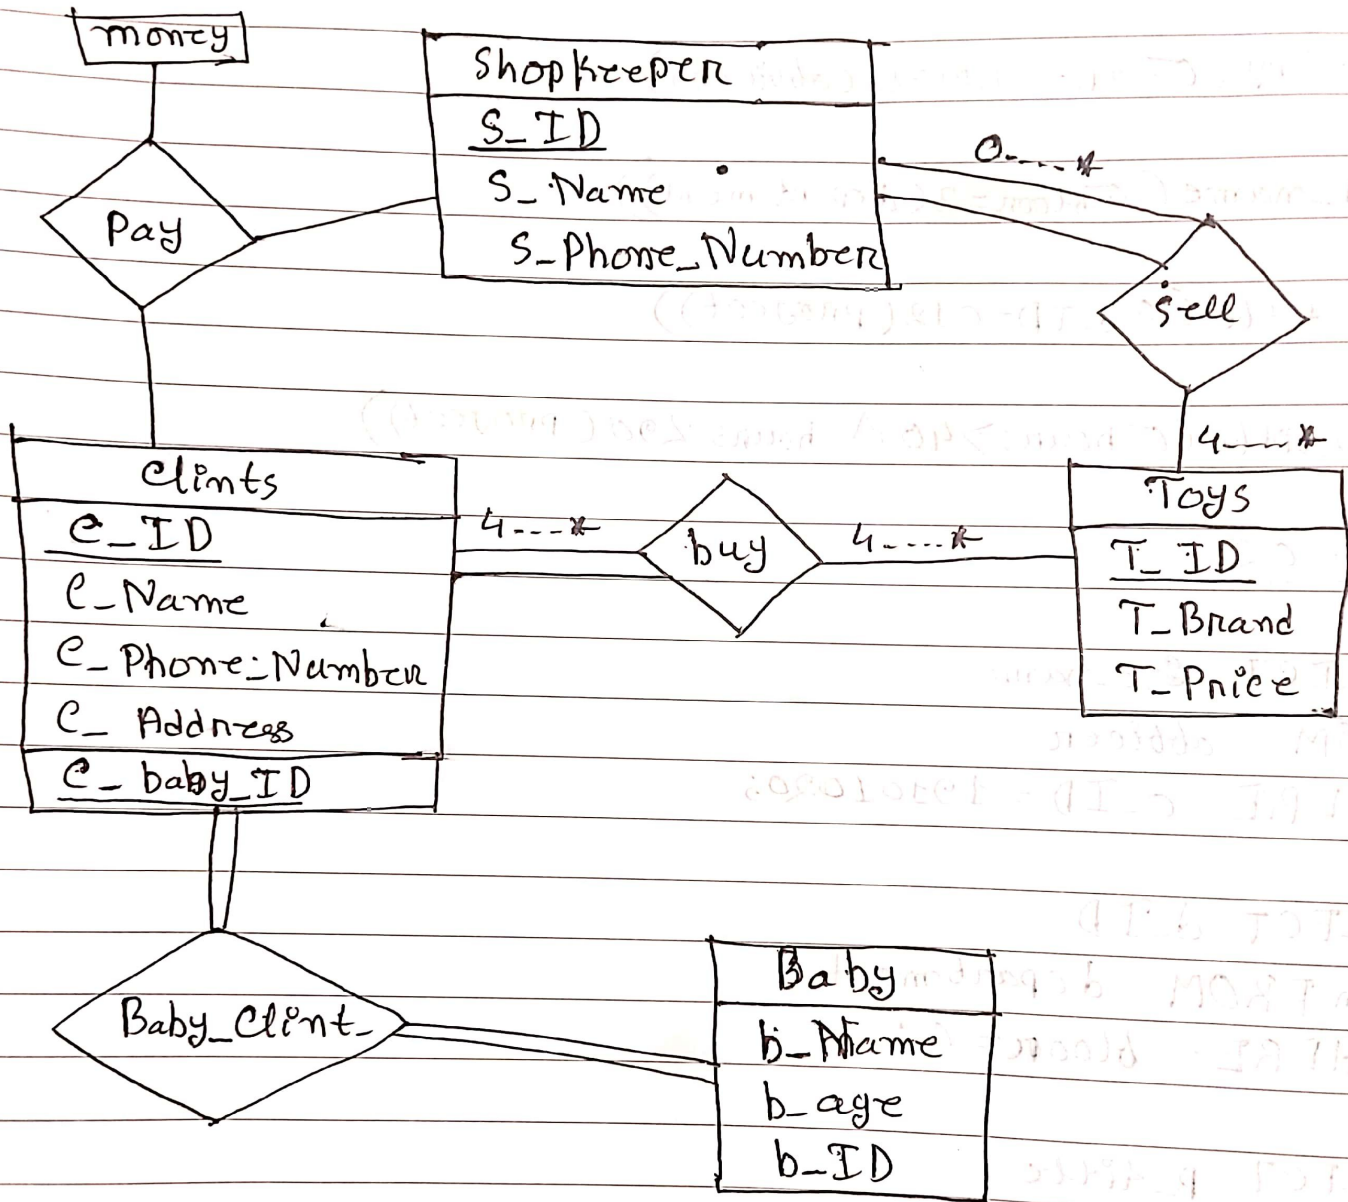 money
Shopkeeper
S_ID
S_Name
S_Phone_Number
0----*
Pay
sell
4----*
Clints
C_ID
C_Name
C_Phone_Number
C_Address
C_baby_ID
4---*
buy
4----*
Toys
T_ID
T_Brand
T_Price
Baby_Clint_
Baby
b_Name
b_age
b_ID